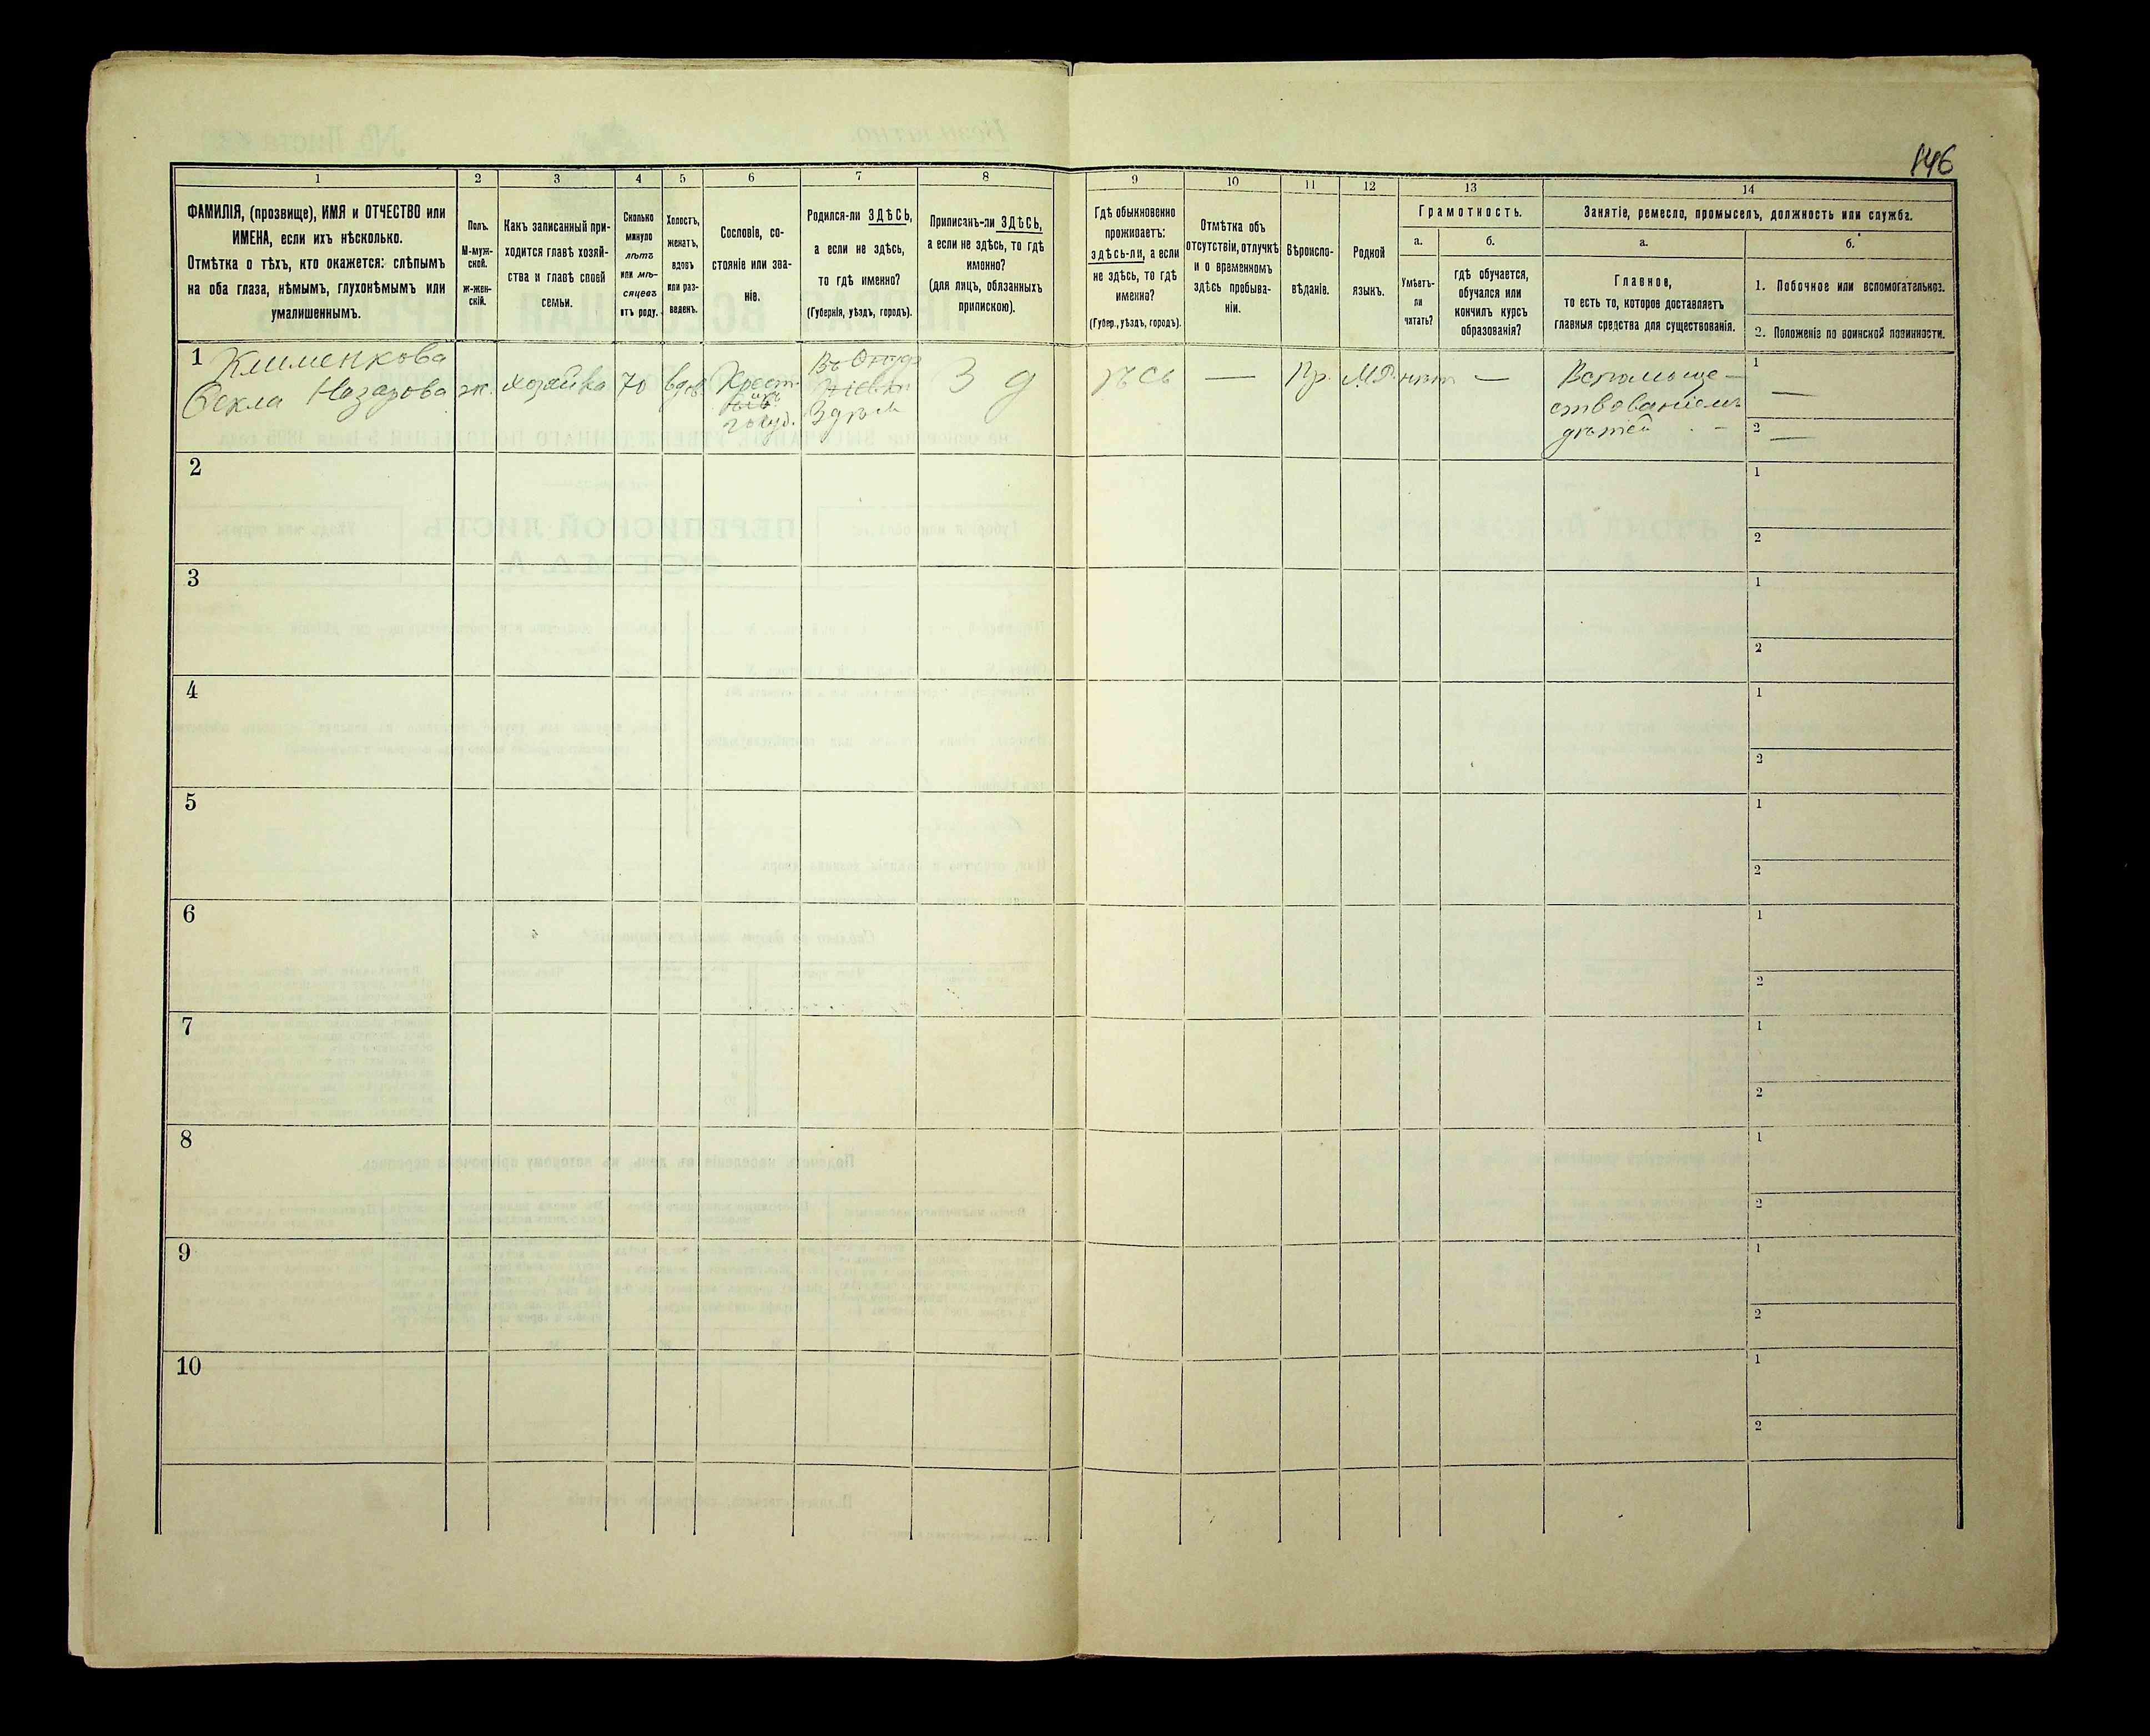 146
1
2
3
4
5
6
7
8
9
10
11
12
13
14
ФАМИЛІЯ, (прозвище), ИМЯ и ОТЧЕСТВО или
ИМЕНА, если ихъ нѣсколько.
Отмѣтка о тѣхъ, кто окажется: слѣпымъ
на оба глаза, нѣмымъ, глухонѣмымъ или
умалишеннымъ.
Полъ.
М-муж-
ской.
ж-жен-
скій.
Какъ записанный при-
ходится главѣ хозяй-
ства и главѣ своей
семьи.
Сколько
минуло
лѣтъ
или мѣ-
сяцевъ
отъ роду.
Холостъ,
женатъ,
вдовъ
или раз-
веденъ.
Сословіе, со-
стояніе или зва-
ніе.
Родился-ли ЗДѢСЬ,
а если не здѣсь,
то гдѣ именно?
(Губернія, уѣздъ, городъ).
Приписанъ-ли ЗДѢСЬ,
а если не здѣсь, то гдѣ
именно?
(для лицъ, обязанныхъ
припискою).
Гдѣ обыкновенно
проживаетъ:
здѣсь-ли, а если
не здѣсь, то гдѣ
именно?
(Губер., уѣздъ, городъ).
Отмѣтка объ
отсутствіи, отлучкѣ
и о временномъ
здѣсь пребыва-
ніи.
Вѣроиспо-
вѣданіе.
Родной
языкъ.
Грамотность.
а.
Умѣетъ-
ли
читать?
б.
гдѣ обучается,
обучался или
кончилъ курсъ
образованія?
Занятіе, ремесло, промыселъ, должность или служба.
а.
Главное,
то есть то, которое доставляетъ
главныя средства для существованія.
б.
1. Побочное или вспомогательное.
2. Положеніе по воинской повинности.
1 Клименкова
Ѳекла Назарова
ж.
хозяйка
70
вдов.
Крест.
Здѣсь
З д
ѣсь
—
Пр.
М.Р.
нѣтъ
—
Вспомоще-
ствованіемъ
дѣтей
1 —
2 —
2
1
2
3
1
2
4
1
2
5
1
2
6
1
2
7
1
2
8
1
2
9
1
2
10
1
2